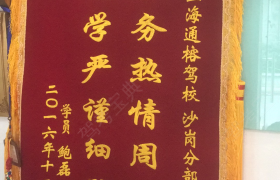 海通榕驾校 沙岗分部
务热情周
学严谨细
学员 鲍磊
二〇一六年十